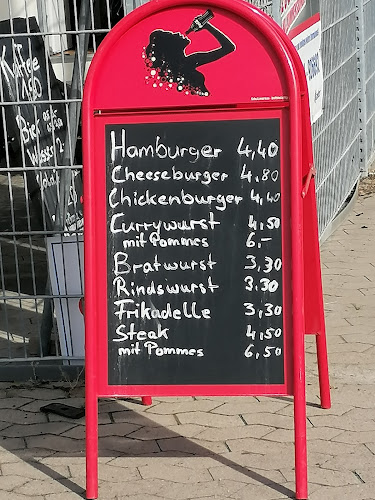 Hamburger 4,40
Cheeseburger 4,80
Chickenburger 4,40
Currywurst 4,50
mit Pommes 6,-
Bratwurst 3,30
Rindswurst 3.30
Frikadelle 3,30
Steak 4,50
mit Pommes 6,50
Kaffee
1,80
Bier
Wasser 2,-